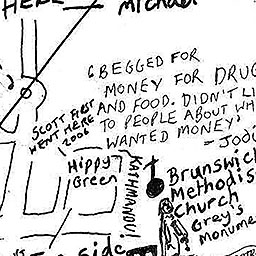 HERE
Michael
'BEGGED FOR
MONEY FOR DRUG
AND FOOD. DIDN'T LI
TO PEOPLE ABOUT WH
WANTED MONEY'
- Jodi
SCOTT FIRST
WENT HERE
2006
Hippy
Green
KATHMANDU!
Brunswic
Methodis
Church
Grey's
Monume
side